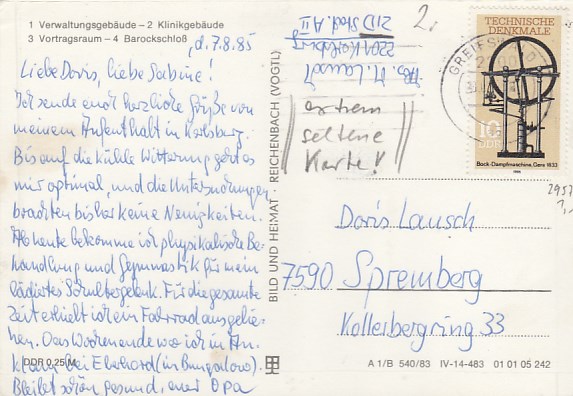 1 Verwaltungsgebäude – 2 Klinikgebäude
3 Vortragsraum – 4 Barockschloß
, d. 7.8.85
Liebe Doris, liebe Sabine!
Ich sende euch herzliche Grüße von
meinem Aufenthalt in Karlsburg.
Bis auf die kühle Witterung geht es
mir optimal, und die Untersuchungen
brachten bisher keine Neuigkeiten.
Ab heute bekomme ich physikalische Be-
handlung und Gymnastik für mein
lädiertes Schultergelenk. Für die gesamte
Zeit erhielt ich ein Fahrrad ausgelie-
hen. Das Wochenende war ich in An-
bei Eberhard (im Bungalow).
Bleibt schön gesund, euer Opa
DDR 0,25 M
BILD UND HEIMAT · REICHENBACH (VOGTL)
Abs. H. Lausch
2201 Karlsburg
ZID Stat. A II
2.
extrem
seltene
Karte!
TECHNISCHE
DENKMALE
10
DDR
Bock-Dampfmaschine, Gera 1833
1985
GREIFS
2957
1,-
Doris Lausch
7590 Spremberg
Kollerbergring 33
A 1/B 540/83 IV-14-483 01 01 05 242